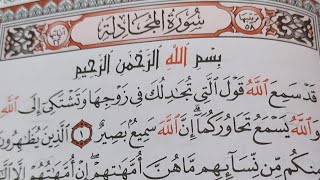 سُورَةُ المُجَادلَةِ
بِسْمِ ٱللَّهِ ٱلرَّحْمَٰنِ ٱلرَّحِيمِ
قَدْ سَمِعَ ٱللَّهُ قَوْلَ ٱلَّتِي تُجَٰدِلُكَ فِي زَوْجِهَا وَتَشْتَكِيٓ إِلَى ٱللَّهِ
وَٱللَّهُ يَسْمَعُ تَحَاوُرَكُمَآ إِنَّ ٱللَّهَ سَمِيعٌۢ بَصِيرٌ ١ ٱلَّذِينَ يُظَٰهِرُونَ
مِنكُم مِّن نِّسَآئِهِم مَّا هُنَّ أُمَّهَٰتِهِمْ إِنْ أُمَّهَٰتُهُمْ إِلَّا